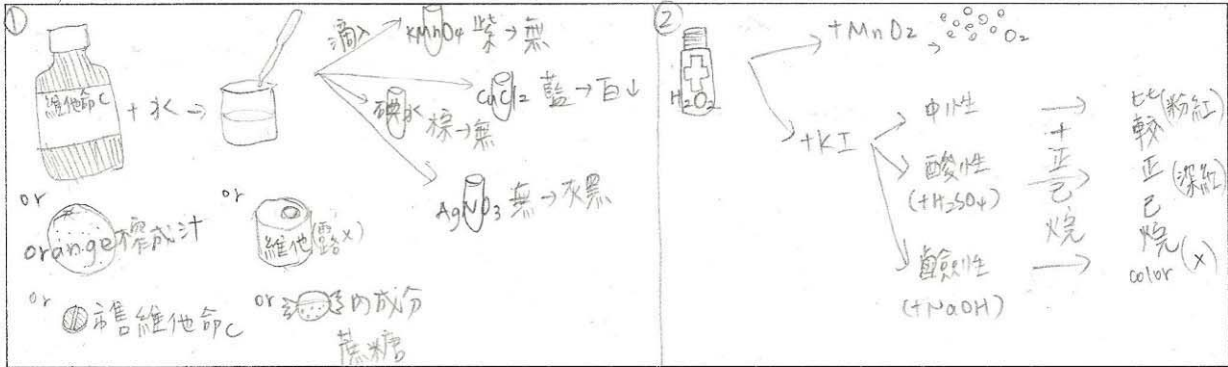 ①
維他命C
+ 水 →
滴入
KMnO4 紫→無
CuCl2 藍→白↓
碘水 棕→無
AgNO3 無→灰黑
or
orange榨成汁
or
維他(露x)
or 市售維他命C
or 內成分
蔗糖
②
H2O2
+MnO2 → O2
+KI
中性 →
酸性 →
(+H2SO4)
鹼性 →
(+NaOH)
+正己烷
比較正己烷color
(粉紅)
(深紅)
(x)